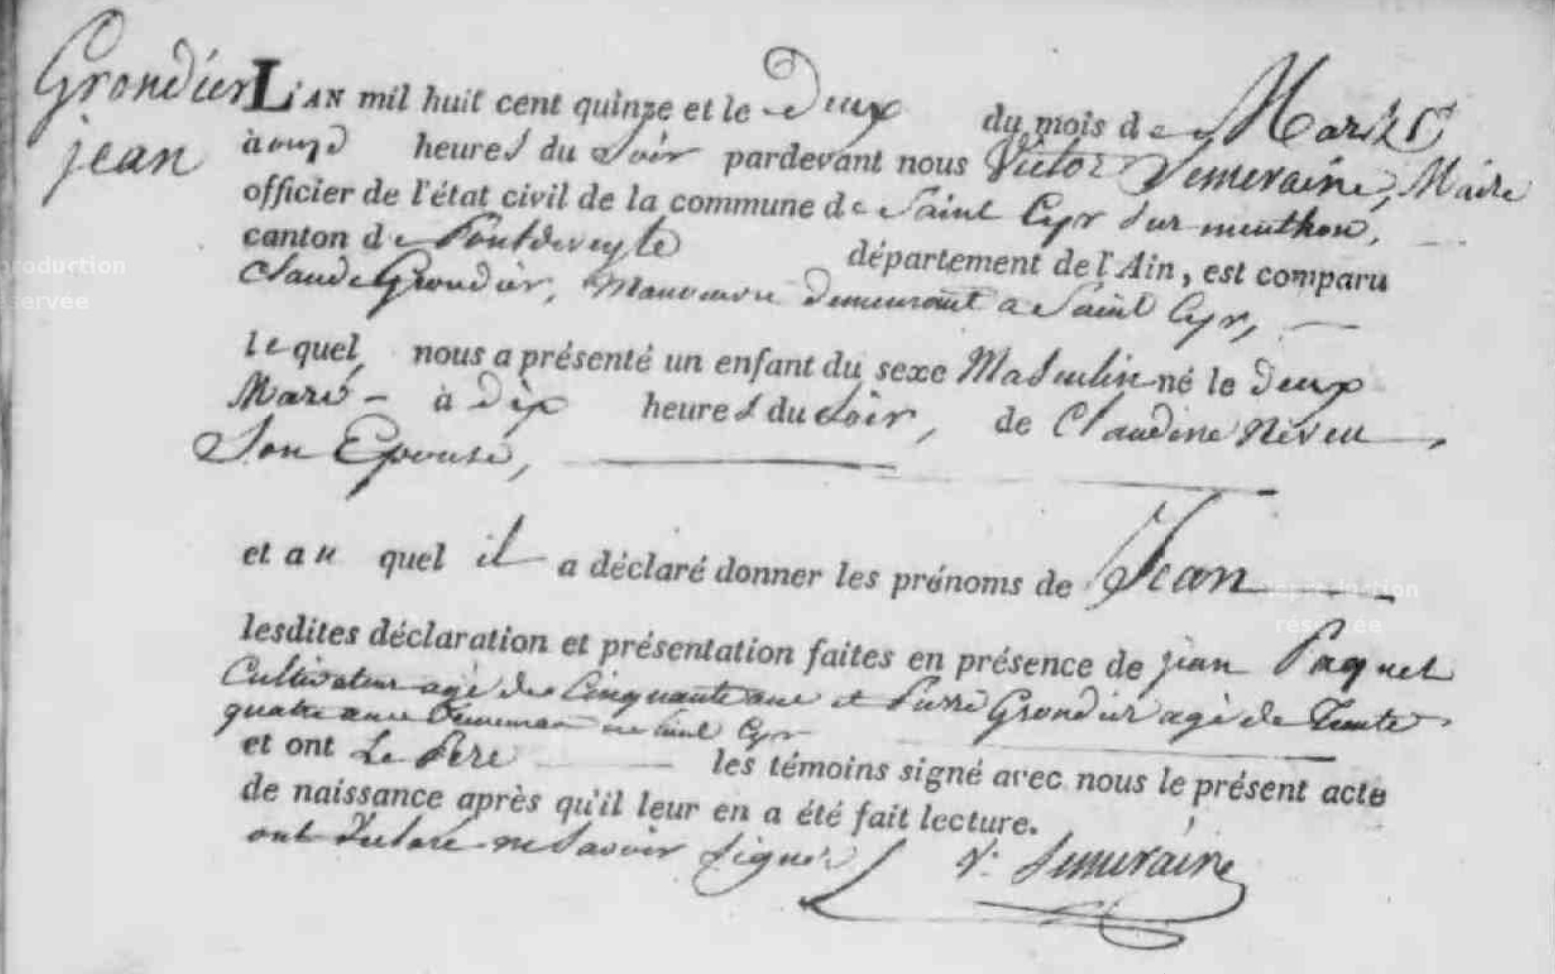 Grondier
jean
L'AN mil huit cent quinze et le Deux du mois de Mars
à onze heures du Soir pardevant nous Victor Semeraire, Maire
officier de l'état civil de la commune de Saint Cyr Sur menthon,
canton de Pontdeveyle département de l'Ain, est comparu
Claude Grondier, Manoeuvre Demeurant a Saint Cyr,
le quel nous a présenté un enfant du sexe Masculin né le Deux
Mars à Dix heures du Soir, de Claudine Neveu
Son Epouse,
et au quel il a déclaré donner les prénoms de Jean
lesdites déclaration et présentation faites en présence de jean Paquet
Cultivateur agé de Cinquante ans et Pierre Grondier agé de Trente
quatre ans Demeurant Saint Cyr
et ont Le Pere les témoins signé avec nous le présent acte
de naissance après qu'il leur en a été fait lecture.
ont Declaré ne Savoir Signer V. Semeraire
production
réservée
reproduction
réservée